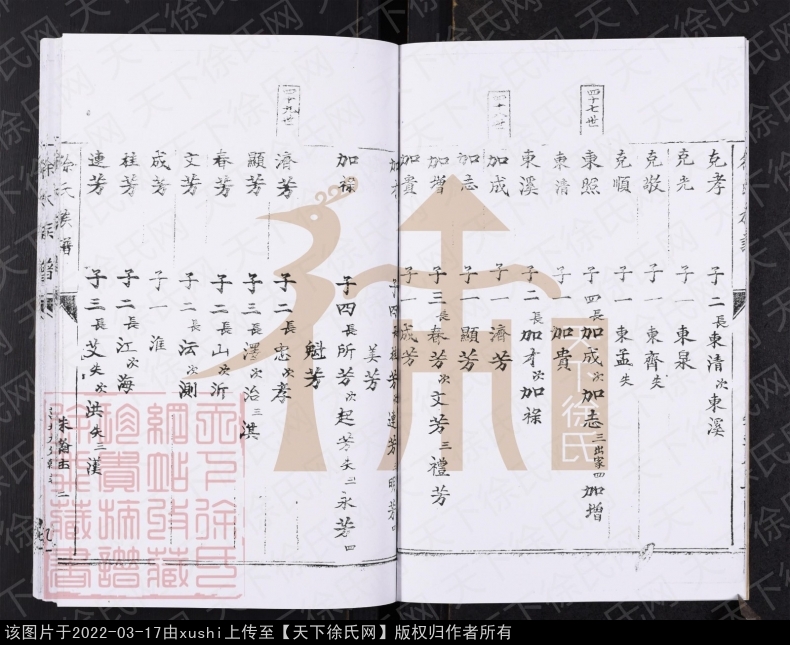 克孝 子二 長東清 次東溪
克先 子一 東泉
克敬 子一 東齊 失
克順 子一 東孟 失
四十七世
東照 子四 長加成 次加志 三出家 四加增
東清 子一 加貴
東溪 子二 長加才 次加祿
十八世
加成 子一 濟芳
加志 子一 顯芳
加增 子三 長春芳 次文芳 三禮芳
加貴 子一 成芳
加才 子四 芳 次連芳 三明芳 四
美芳
加祿 子四 長所芳 次起芳 失 三永芳 四
魁芳
四十九世
濟芳 子二 長忠 次孝
顯芳 子三 長澤 次治 三淇
春芳 子二 長山 次沂
文芳 子二 長沄 次測
成芳 子一 淮
桂芳 子二 長江 次海
連芳 子三 長艾 失 次洪 失 三漢
徐氏族譜
天下徐氏
天下徐氏
網站收藏
珍貴族譜
徐
藏書
天下徐氏网
该图片于2022-03-17由xushi上传至【天下徐氏网】版权归作者所有